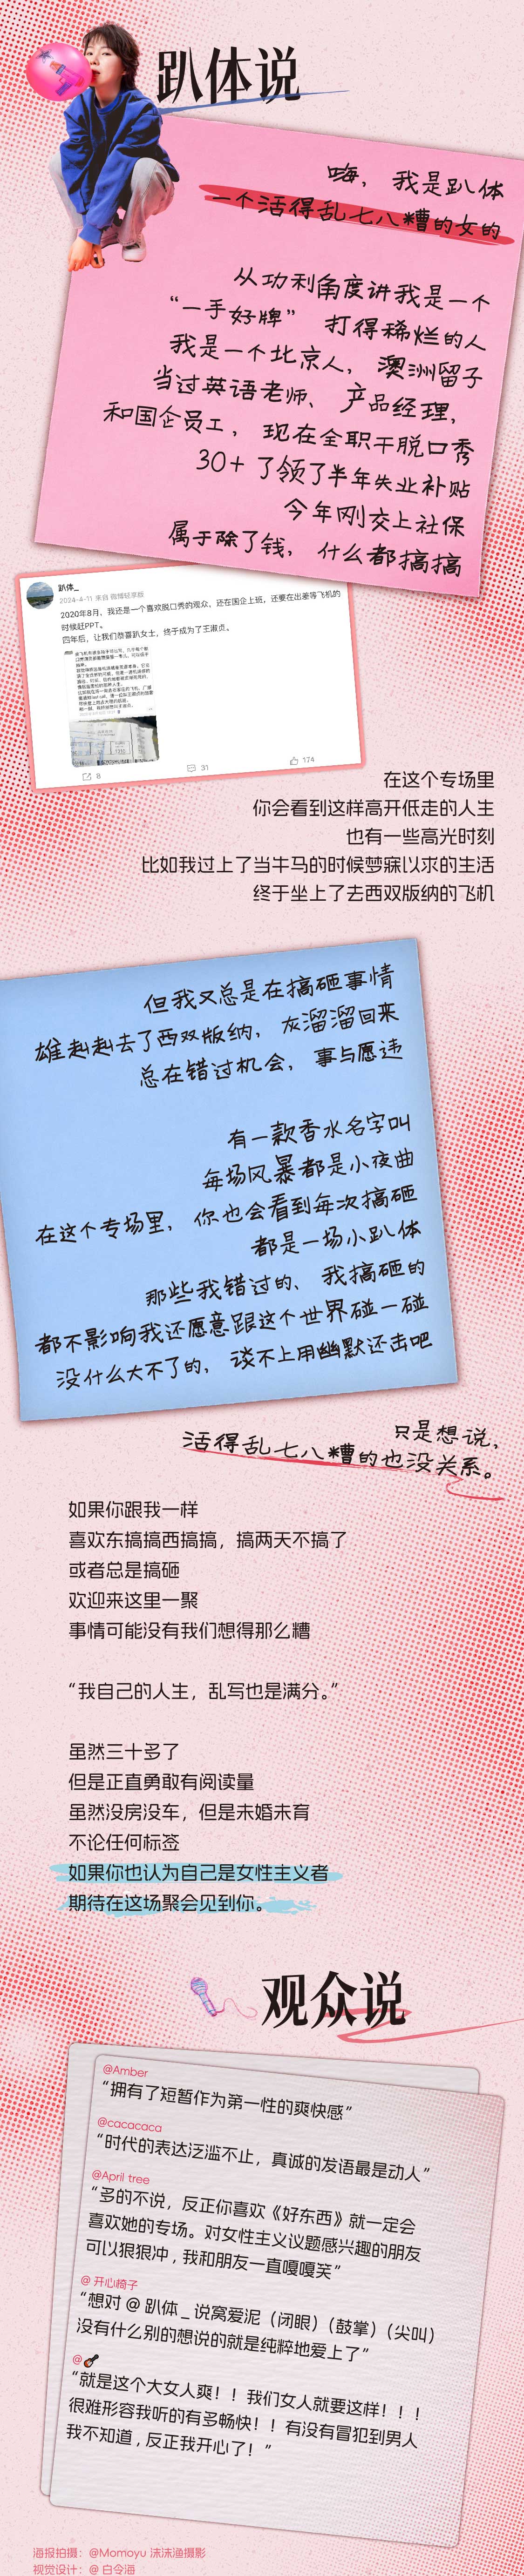 趴体说
嗨， 我是趴体
一个活得乱七八*糟的女的
从功利角度讲我是一个
“一手好牌” 打得稀烂的人
我是一个北京人， 澳洲留子
当过英语老师、 产品经理，
和国企员工， 现在全职干脱口秀
30+ 了领了半年失业补贴
今年刚交上社保
属于除了钱， 什么都搞搞
趴体_
2024-4-11 来自 微博轻享版
2020年8月，我还是一个喜欢脱口秀的观众，还在国企上班，还要在出差等飞机的
时候赶PPT。
四年后，让我们恭喜趴女士，终于成为了王淑贞。
8
31
174
在这个专场里
你会看到这样高开低走的人生
也有一些高光时刻
比如我过上了当牛马的时候梦寐以求的生活
终于坐上了去西双版纳的飞机
但我又总是在搞砸事情
雄赳赳去了西双版纳， 灰溜溜回来
总在错过机会， 事与愿违
有一款香水名字叫
每场风暴都是小夜曲
在这个专场里， 你也会看到每次搞砸
都是一场小趴体
那些我错过的、 我搞砸的
都不影响我还愿意跟这个世界碰一碰
没什么大不了的， 谈不上用幽默还击吧
只是想说，
活得乱七八*糟的也没关系。
如果你跟我一样
喜欢东搞搞西搞搞，搞两天不搞了
或者总是搞砸
欢迎来这里一聚
事情可能没有我们想得那么糟
“我自己的人生，乱写也是满分。”
虽然三十多了
但是正直勇敢有阅读量
虽然没房没车，但是未婚未育
不论任何标签
如果你也认为自己是女性主义者
期待在这场聚会见到你。
观众说
@Amber
“拥有了短暂作为第一性的爽快感”
@cacacaca
“时代的表达泛滥不止，真诚的发语最是动人”
@April tree
“多的不说，反正你喜欢《好东西》就一定会
喜欢她的专场。对女性主义议题感兴趣的朋友
可以狠狠冲，我和朋友一直嘎嘎笑”
@ 开心椅子
“想对 @ 趴体 _ 说窝爱泥（闭眼）（鼓掌）（尖叫）
没有什么别的想说的就是纯粹地爱上了”
@
“就是这个大女人爽！！我们女人就要这样！！！
很难形容我听的有多畅快！！有没有冒犯到男人
我不知道，反正我开心了！”
海报拍摄：@Momoyu 沫沫渔摄影
视觉设计：@ 白令海